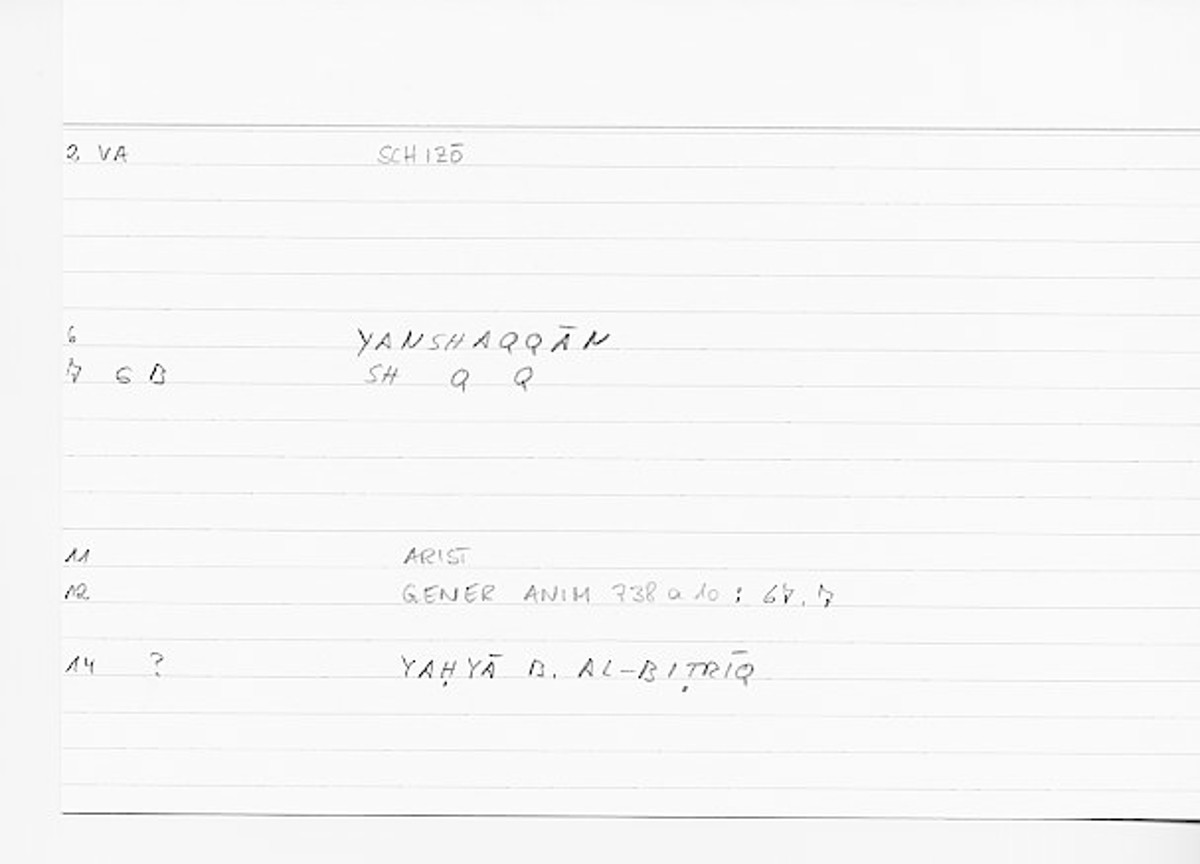 2 VA SCHIZŌ
6 YANSHAQQĀN
7 6 B SH Q Q
11 ARIST
12 GENER ANIM 738 a 10 : 67.7
14 ? YAḤYĀ B. AL-BIṬRĪQ